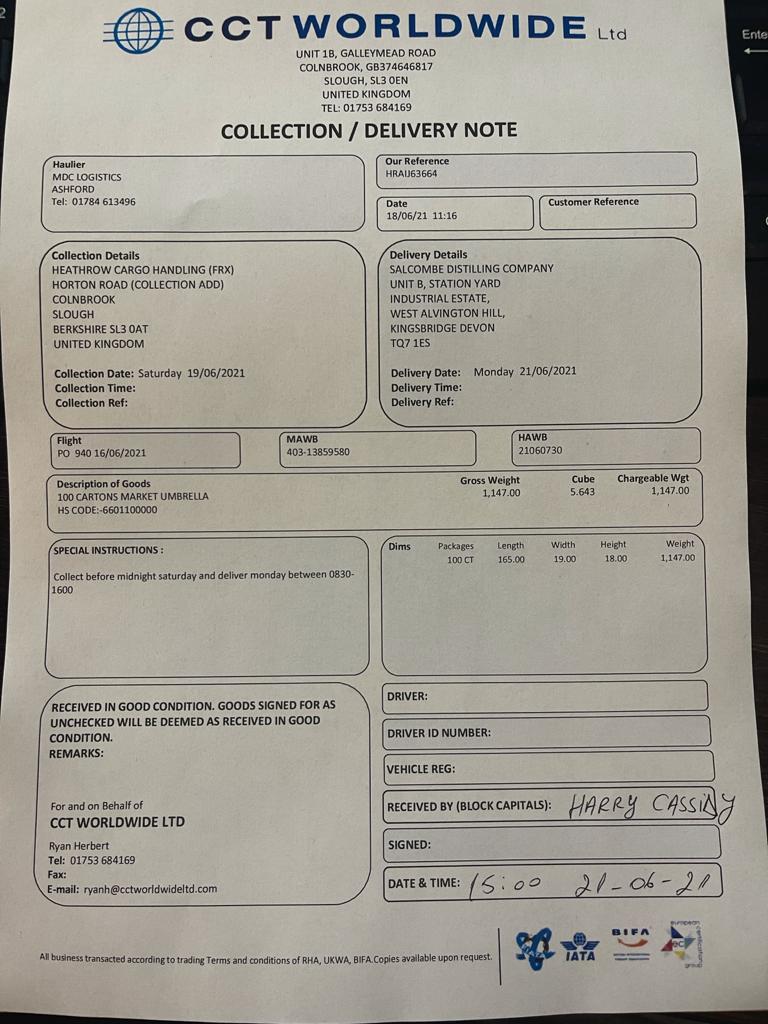 2
Ente
CCT WORLDWIDE Ltd
UNIT 1B, GALLEYMEAD ROAD
COLNBROOK, GB374646817
SLOUGH, SL3 0EN
UNITED KINGDOM
TEL: 01753 684169
COLLECTION / DELIVERY NOTE
Haulier
MDC LOGISTICS
ASHFORD
Tel: 01784 613496
Our Reference
HRAIJ63664
Date
18/06/21 11:16
Customer Reference
Collection Details
HEATHROW CARGO HANDLING (FRX)
HORTON ROAD (COLLECTION ADD)
COLNBROOK
SLOUGH
BERKSHIRE SL3 0AT
UNITED KINGDOM
Collection Date: Saturday 19/06/2021
Collection Time:
Collection Ref:
Delivery Details
SALCOMBE DISTILLING COMPANY
UNIT B, STATION YARD
INDUSTRIAL ESTATE,
WEST ALVINGTON HILL,
KINGSBRIDGE DEVON
TQ7 1ES
Delivery Date: Monday 21/06/2021
Delivery Time:
Delivery Ref:
Flight
PO 940 16/06/2021
MAWB
403-13859580
HAWB
21060730
Description of Goods Gross Weight Cube Chargeable Wgt
100 CARTONS MARKET UMBRELLA 1,147.00 5.643 1,147.00
HS CODE:-6601100000
SPECIAL INSTRUCTIONS :
Collect before midnight saturday and deliver monday between 0830-
1600
Dims Packages Length Width Height Weight
100 CT 165.00 19.00 18.00 1,147.00
RECEIVED IN GOOD CONDITION. GOODS SIGNED FOR AS
UNCHECKED WILL BE DEEMED AS RECEIVED IN GOOD
CONDITION.
REMARKS:
For and on Behalf of
CCT WORLDWIDE LTD
Ryan Herbert
Tel: 01753 684169
Fax:
E-mail: ryanh@cctworldwideltd.com
DRIVER:
DRIVER ID NUMBER:
VEHICLE REG:
RECEIVED BY (BLOCK CAPITALS): HARRY CASSIDY
SIGNED:
DATE & TIME: 15:00 21-06-21
All business transacted according to trading Terms and conditions of RHA, UKWA, BIFA.Copies available upon request.
IATA
BIFA
european
ec
group